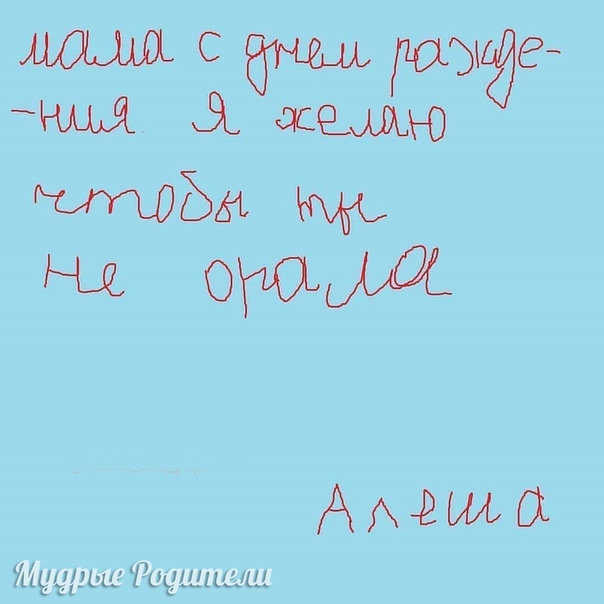 мама с днем ражде-
-ния я желаю
чтобы ты
не орала
Алеша
Мудрые Родители